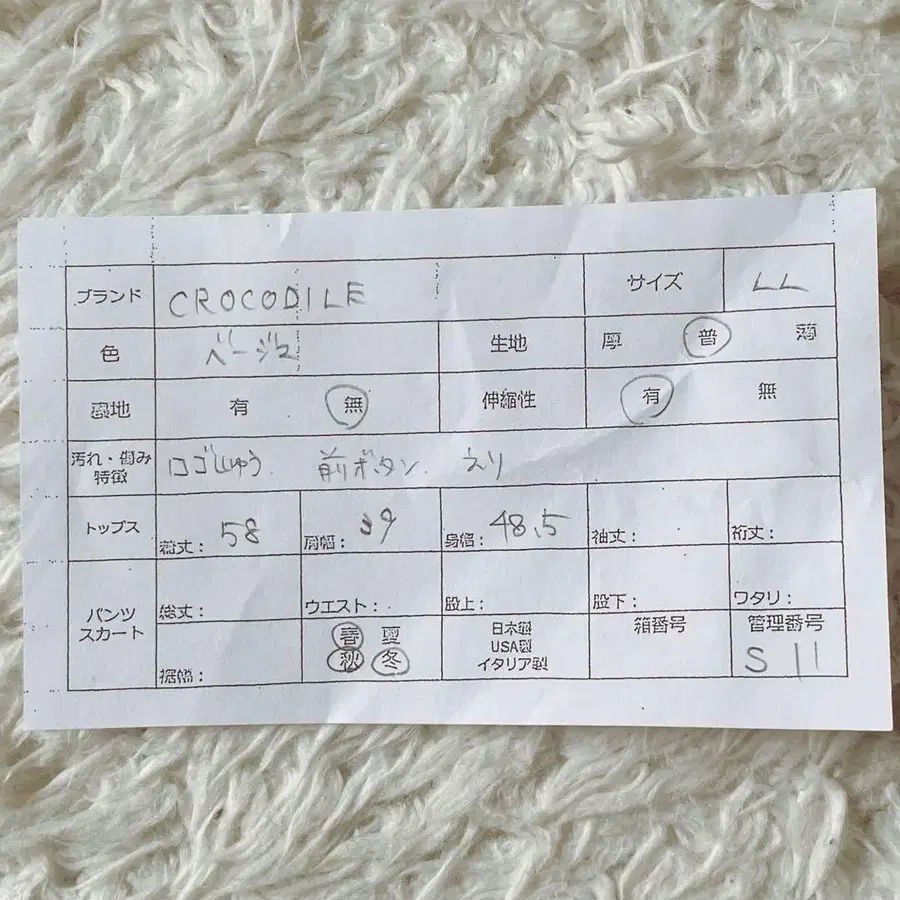 ブランド CROCODILE サイズ LL
色 ベージュ 生地 厚 普 薄
裏地 有 無 伸縮性 有 無
汚れ・傷み
特徴 ロゴししゅう 前ボタン えり
トップス 着丈: 58 肩幅: 39 身幅: 48.5 袖丈: 裄丈:
パンツ
スカート
総丈: ウエスト: 股上: 股下: ワタリ:
裾幅:
春 夏
秋 冬
日本製
USA製
イタリア製
箱番号
管理番号
S 11